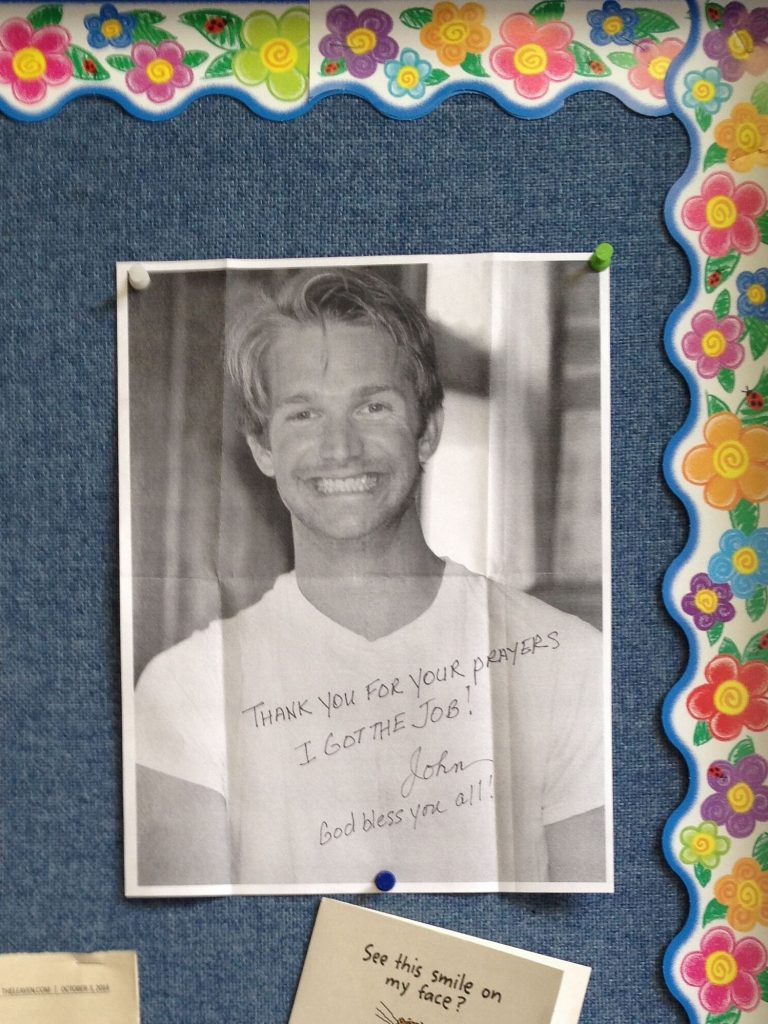 THANK YOU FOR YOUR PRAYERS
I GOT THE JOB!
John
God bless you all!
See this smile on
my face?
THELEAVEN.COM | OCTOBER 3, 2014